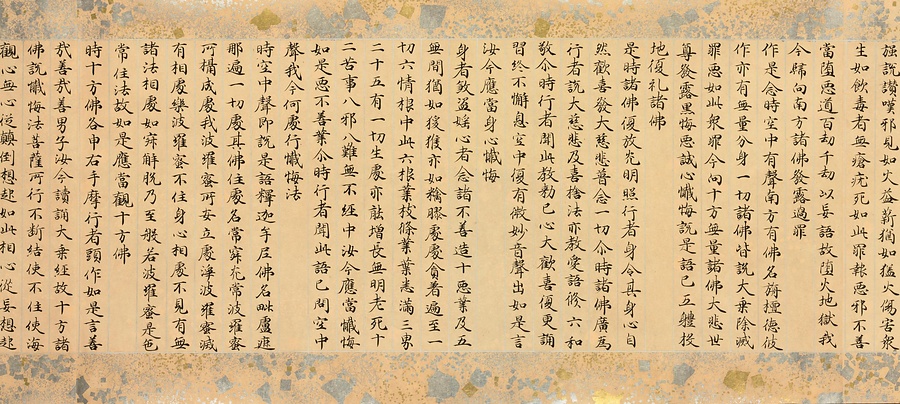 強說讚嘆邪見如火益薪猶如猛火傷害衆
生如飲毒者無瘡疣死如此罪報惡邪不善
當墮惡道百劫千劫以妄語故墮火地獄我
今歸向南方諸佛發露過罪
作是念時空中有聲南方有佛名旃檀德彼
作亦有無量分身一切諸佛皆說大乘除滅
罪惡如此衆罪今向十方無量諸佛大悲世
尊發露黑悔惡誠心懺悔說是語已五軆投
地復礼諸佛
是時諸佛復放光明照行者身令其身心自
然歡喜發大慈悲普念一切尒時諸佛廣爲
行者說大慈悲及喜捨法亦教愛語修六和
敬尒時行者聞此教勅已心大歡喜復更誦
習終不懈息空中復有微妙音聲出如是言
汝今應當身心懺悔
身者煞盜婬心者念諸不善造十惡業及五
無間猶如猨猴亦如黐膠處處貪著遍至一
切六情根中此六根業枝條業葉悉滿三界
二十五有一切生處亦能增長無明老死十
二苦事八邪八難無不經中汝今應當懺悔
如是惡不善業尒時行者聞此語已問空中
聲我今何處行懺悔法
時空中聲即說是語釋迦牟尼佛名毗盧遮
那遍一切處其佛住處名常寂光常波羅蜜
所攝成處我波羅蜜所安立處淨波羅蜜滅
有相處樂波羅蜜不住身心相處不見有無
諸法相處如寂解脫乃至般若波羅蜜是色
常住法故如是應當觀十方佛
時十方佛各申右手摩行者頭作如是言善
哉善哉善男子汝今讀誦大乘經故十方諸
佛說懺悔法菩薩所行不斷結使不住使海
觀心無心從顛倒想起如此相心從妄想起